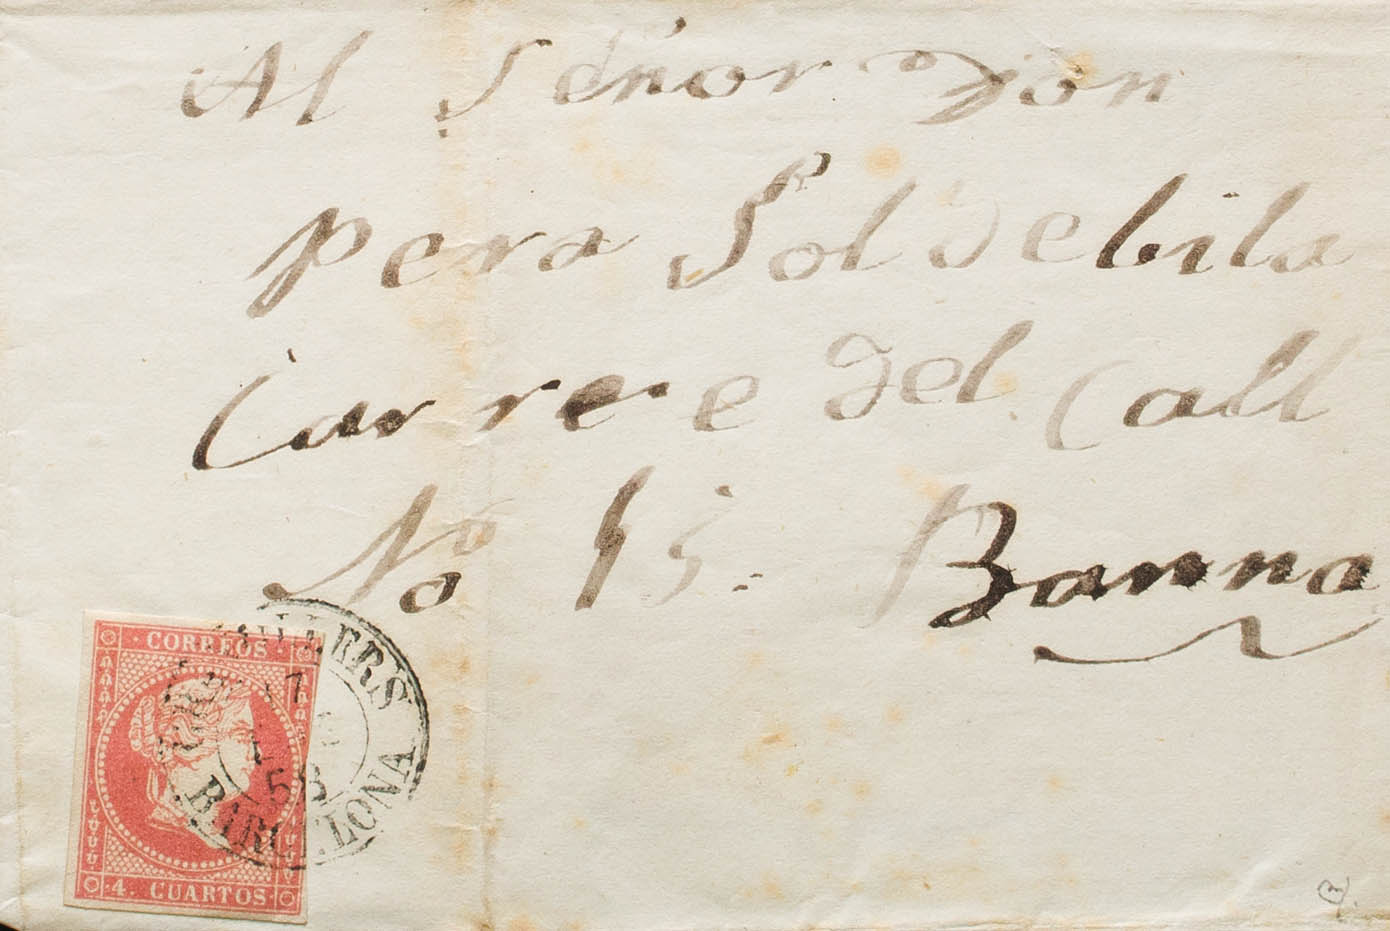 Al Señor Don
pera Soldebila
Carrer del Call
No 15. Banna
CORREOS
4. CUARTOS
17
58
BARCELONA